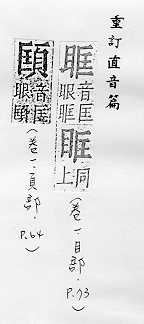 重訂直音篇
眶
音匡
眼眶
同
上
(卷一目部.P.73)
音匡
眼
(卷一.頁部.P.64)